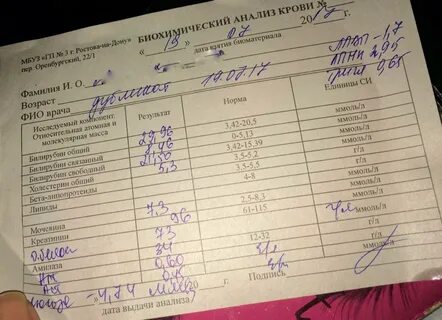 МБУЗ «ГП № 3 г. Ростова-на-Дону»
пер. Оренбургский, 22/1
БИОХИМИЧЕСКИЙ АНАЛИЗ КРОВИ №
« 19 » 07 2017 г.
дата взятия биоматериала
Фамилия И. О.
Возраст
ФИО врача 19.07.17
ЛПВП - 1,7
ЛПНП 2,95
0,65
Исследуемый компонент. Относительная атомная и молекулярная масса Результат Норма Единицы СИ
Билирубин общий 29,96 3,42-20,5 ммоль/л
Билирубин связанный 8,46 0-5,13 ммоль/л
Билирубин свободный 21,50 3,42-15,39 ммоль/л
Холестерин общий 5,3 3,5-5,2 ммоль/л
Бета-липопротеиды 3,5-5,5 г/л
Липиды 4-8 г/л
Мочевина 7,3 2,5-8,3 ммоль/л
Креатинин 96 61-115 ммоль/л
О.белок 73 г/л
Амилаза 34 12-32 г/л
0,60 ммоль/л
0,45
4,74
дата выдачи анализа
Подпись